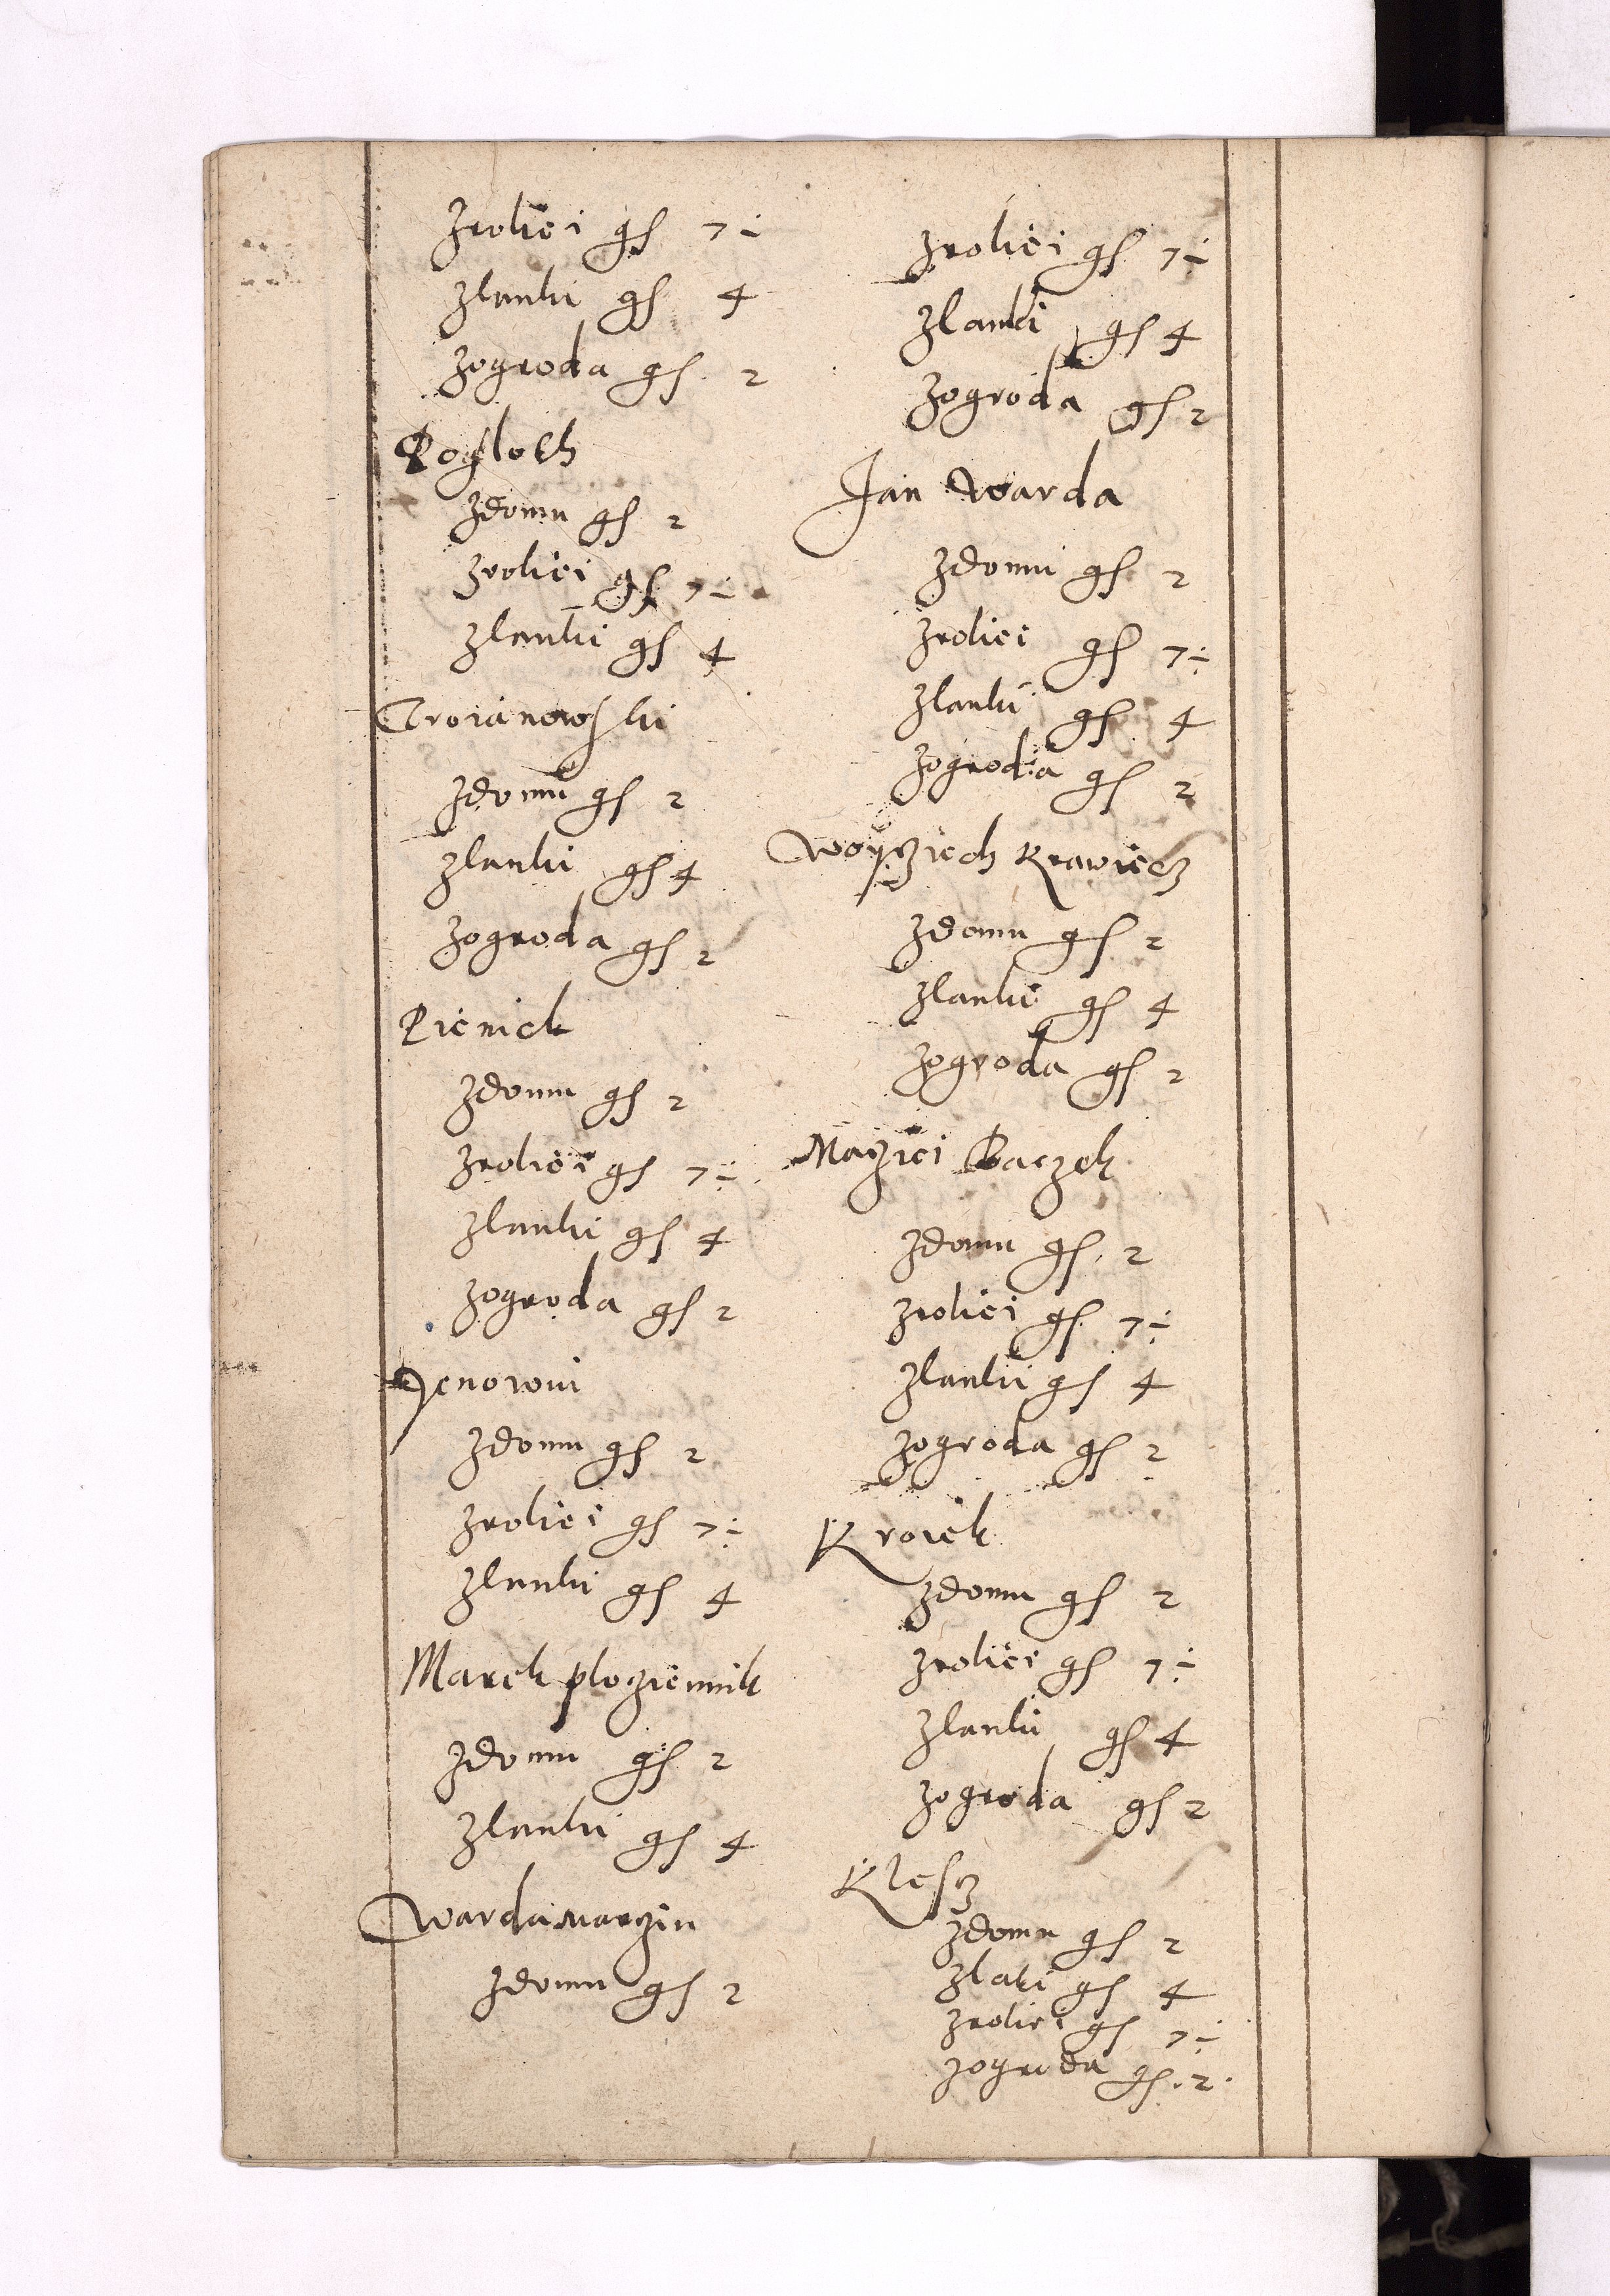 Zroliei gſ 7 ÷
Zlanki gſ 4
Zogroda gſ 2
Zdomu gſ 2
Zroliei gſ 7 ÷
Zlanki gſ 4
Troianowſki
Zdomu gſ 2
Zlanki gſ 4
Zogroda gſ 2
Pieniek
Zdomu gſ 2
Zroliei gſ 7 ÷
Zlanki gſ 4
Zogroda gſ 2
Zdomu gſ 2
Zroliei gſ 7 ÷
Zlanki gſ 4
Marek ploziennik
Zdomu gſ 2
Zlanki gſ 4
Warda Marczin
Zdomu gſ 2
Zroliei gſ 7 ÷
Zlanki gſ 4
Zogroda gſ 2
Jan Warda
Zdomu gſ 2
Zroliei gſ 7 ÷
Zlanki gſ 4
Zogroda gſ 2
Woycziech Krawiecz
Zdomu gſ 2
Zlanki gſ 4
Zogroda gſ 2
Macziei Baczek
Zdomu gſ 2
Zroliei gſ 7 ÷
Zlanki gſ 4
Zogroda gſ 2
Kroiek
Zdomu gſ 2
Zroliei gſ 7 ÷
Zlanki gſ 4
Zogroda gſ 2
Kleſcz
Zdomu gſ 2
Zlaki gſ 4
Zroliei gſ 7 ÷
Zogroda gſ. 2.